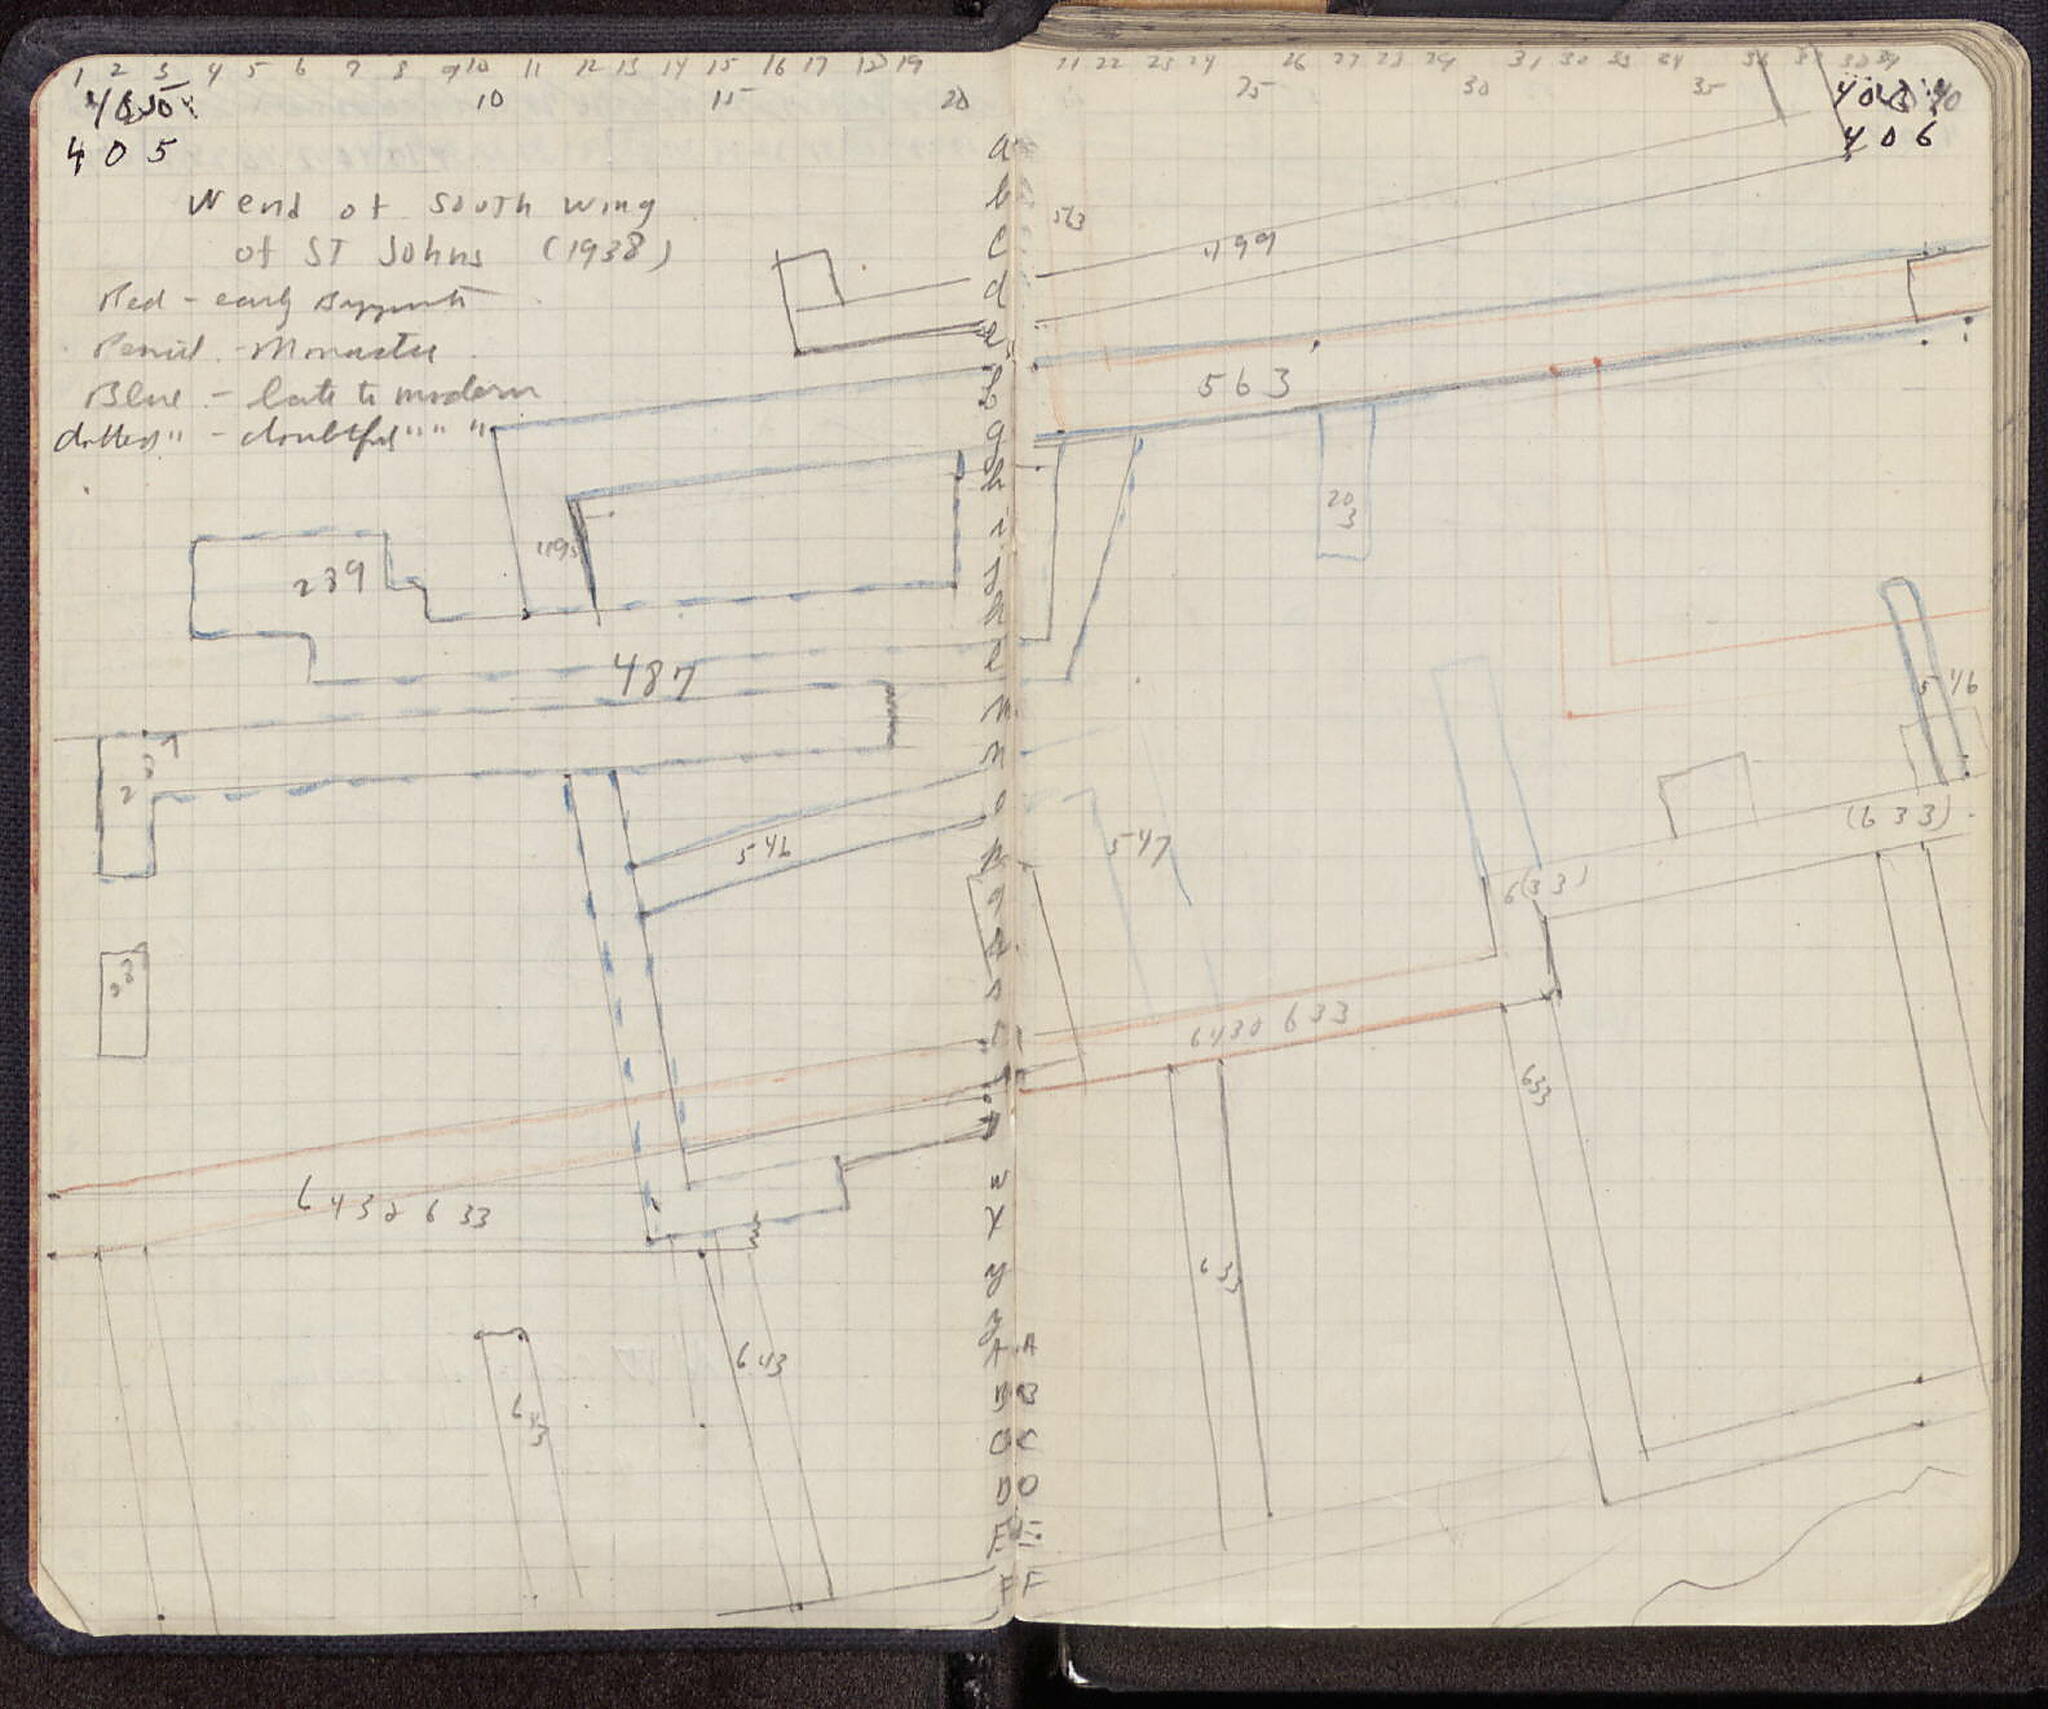 1 2 3 4 5 6 7 8 9 10 11 12 13 14 15 16 17 18 19
10 15 20
405
W end of South wing
of ST Johns (1938)
Red - early
Pencil - Monastic
Blue - late to modern
dotted " - doubtful " " "
239
487
546
6430 633
643
643
a
b
c
d
e
f
g
h
i
J
k
l
m
n
o
p
q
r
s
t
w
x
y
z
A A
B B
C C
D D
E E
F F
21 22 23 24 26 27 28 29 31 32 33 34 36 37 38 39
25 30 35 40
406
563
499
563
20
3
546
547
(633)
6(33)
6430 633
633
633